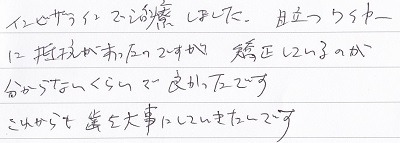 インビザラインで治療しました。目立つワイヤー
に抵抗があったのですが、矯正しているのか
分からないくらいで良かったです
これからも歯を大事にしていきたいです